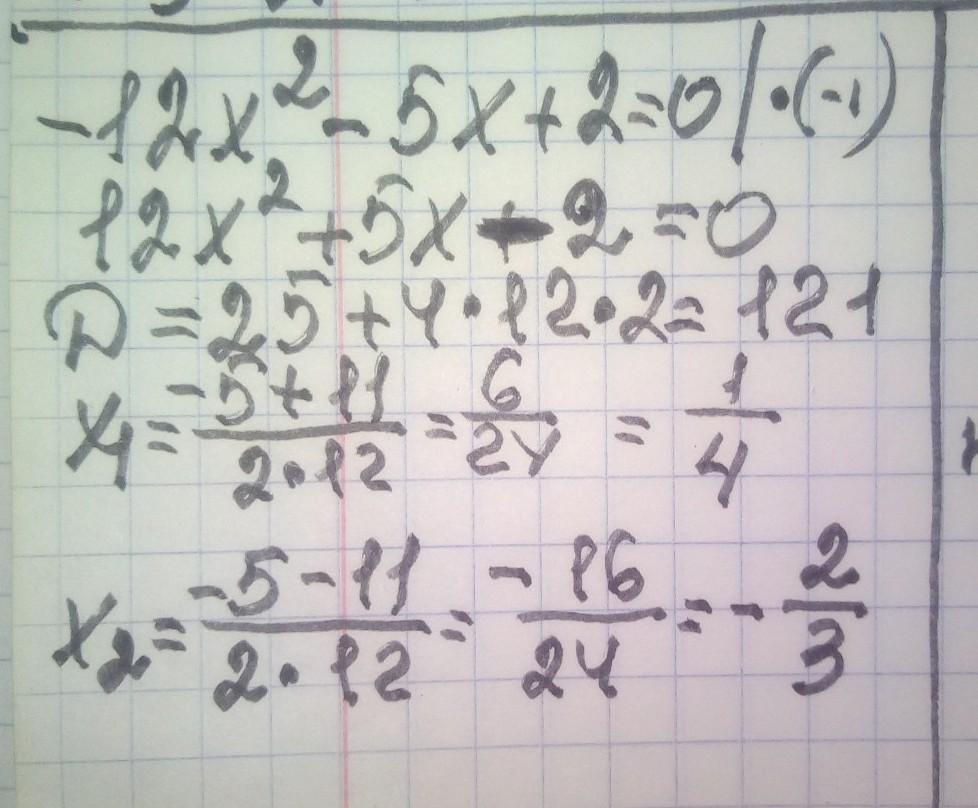 -12x² - 5x + 2 = 0 | · (-1)
12x² + 5x - 2 = 0
D = 25 + 4 · 12 · 2 = 121
x₁ = (-5 + 11)/(2 · 12) = 6/24 = 1/4
x₂ = (-5 - 11)/(2 · 12) = -16/24 = -2/3